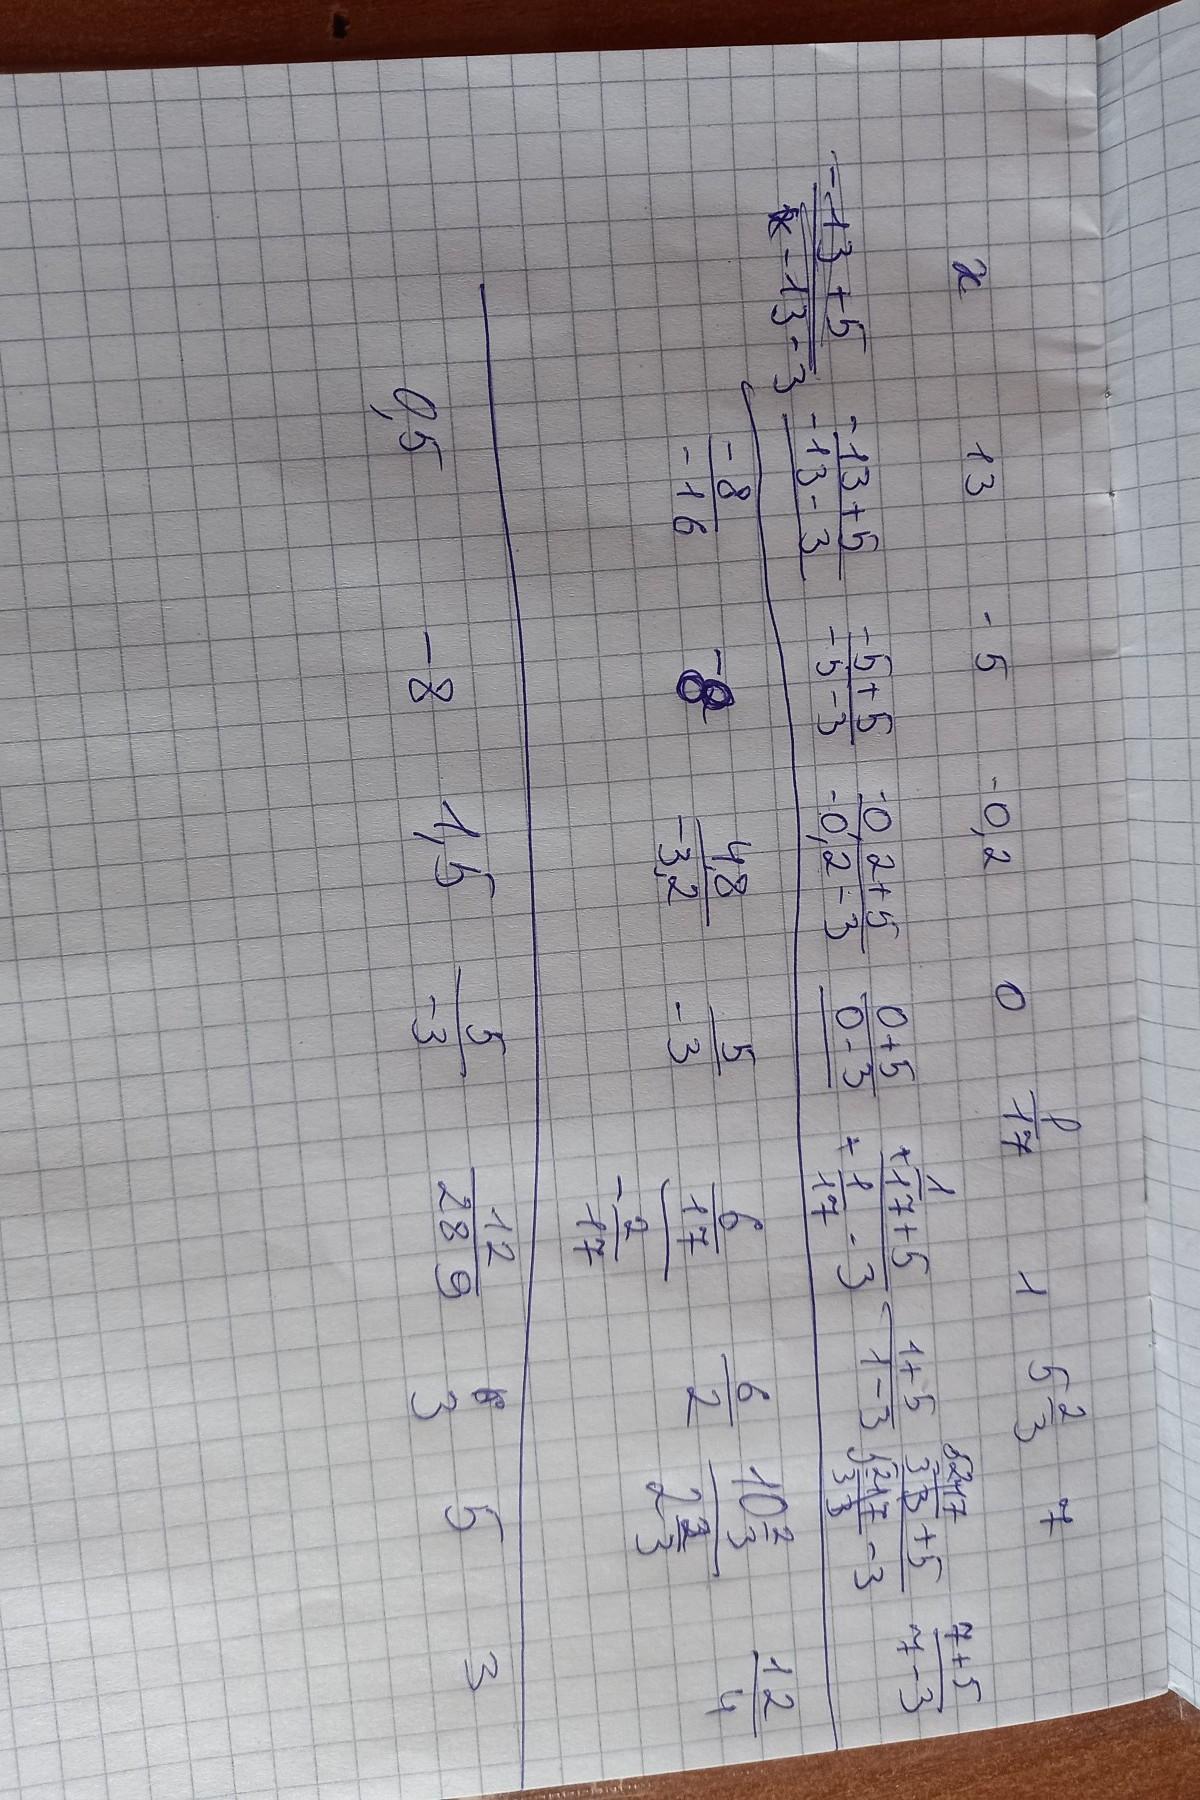 x 13 -5 -0,2 0 1/17 1 5 2/3 7
-13+5/-13-3 -13+5/-13-3 -5+5/-5-3 -0,2+5/-0,2-3 0+5/0-3 1/17+5/1/17-3 1+5/1-3 17/3+5/17/3-3 7+5/7-3
-8/-16 4,8/-3,2 5/-3 6/17/-2/17 6/2 10 2/3/2 2/3 12/4
0,5 -8 1,5 5/-3 12/289 3 5 3